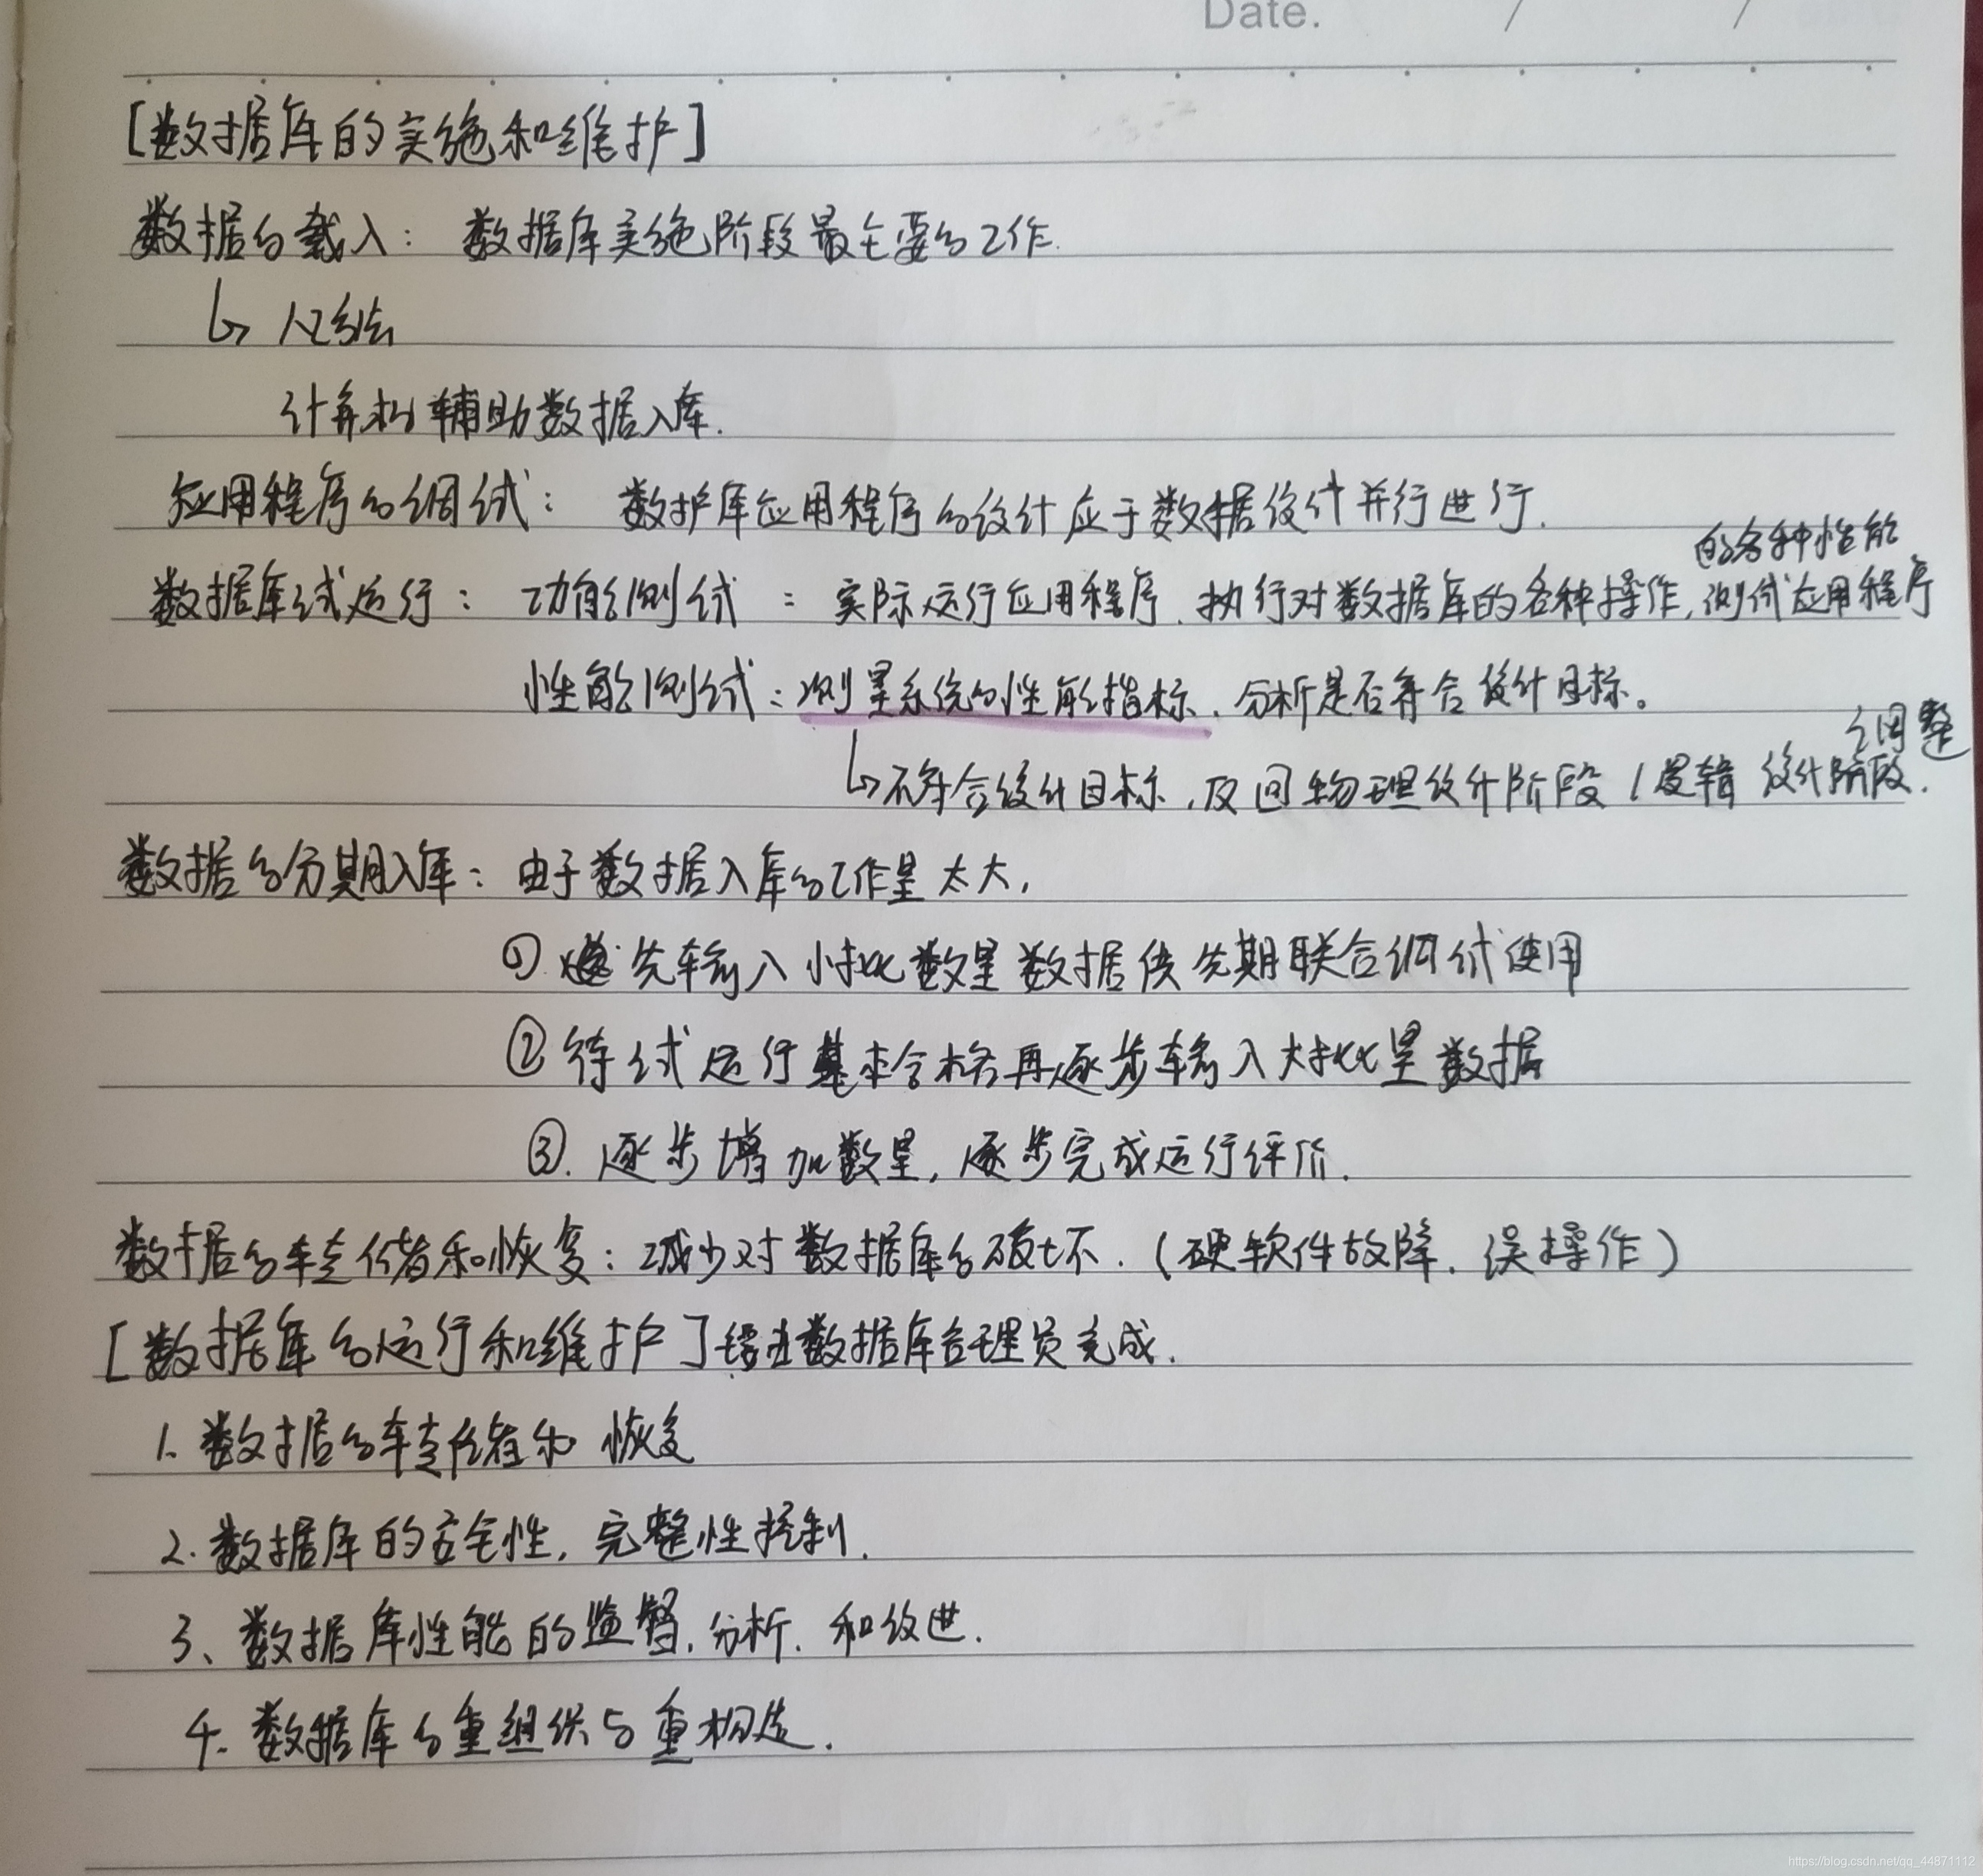 Date. / /
[数据库的实施和维护]
数据的载入： 数据库实施阶段最主要的工作.
↳ 人工方法
计算机辅助数据入库.
应用程序的调试： 数据库应用程序的设计应于数据设计并行进行.
的各种性能
数据库试运行： 功能测试： 实际运行应用程序.执行对数据库的各种操作,测试应用程序
性能测试：测量系统的性能指标.分析是否符合设计目标。
调整
↳不符合设计目标,反回物理设计阶段/逻辑 设计阶段.
数据的分期入库：由于数据入库的工作量太大,
① 先输入小批数量数据供先期联合调试使用
② 待试运行基本合格再逐步输入大批量数据
③. 逐步增加数量,逐步完成运行评价.
数据的转储和恢复：减少对数据库的破坏.(硬软件故障.误操作)
[数据库的运行和维护]由数据库管理员完成.
1. 数据的转储和 恢复
2.数据库的安全性,完整性控制.
3、数据库性能的监督,分析.和改进.
4.数据库的重组织与重构造.
https://blog.csdn.net/qq_44871112